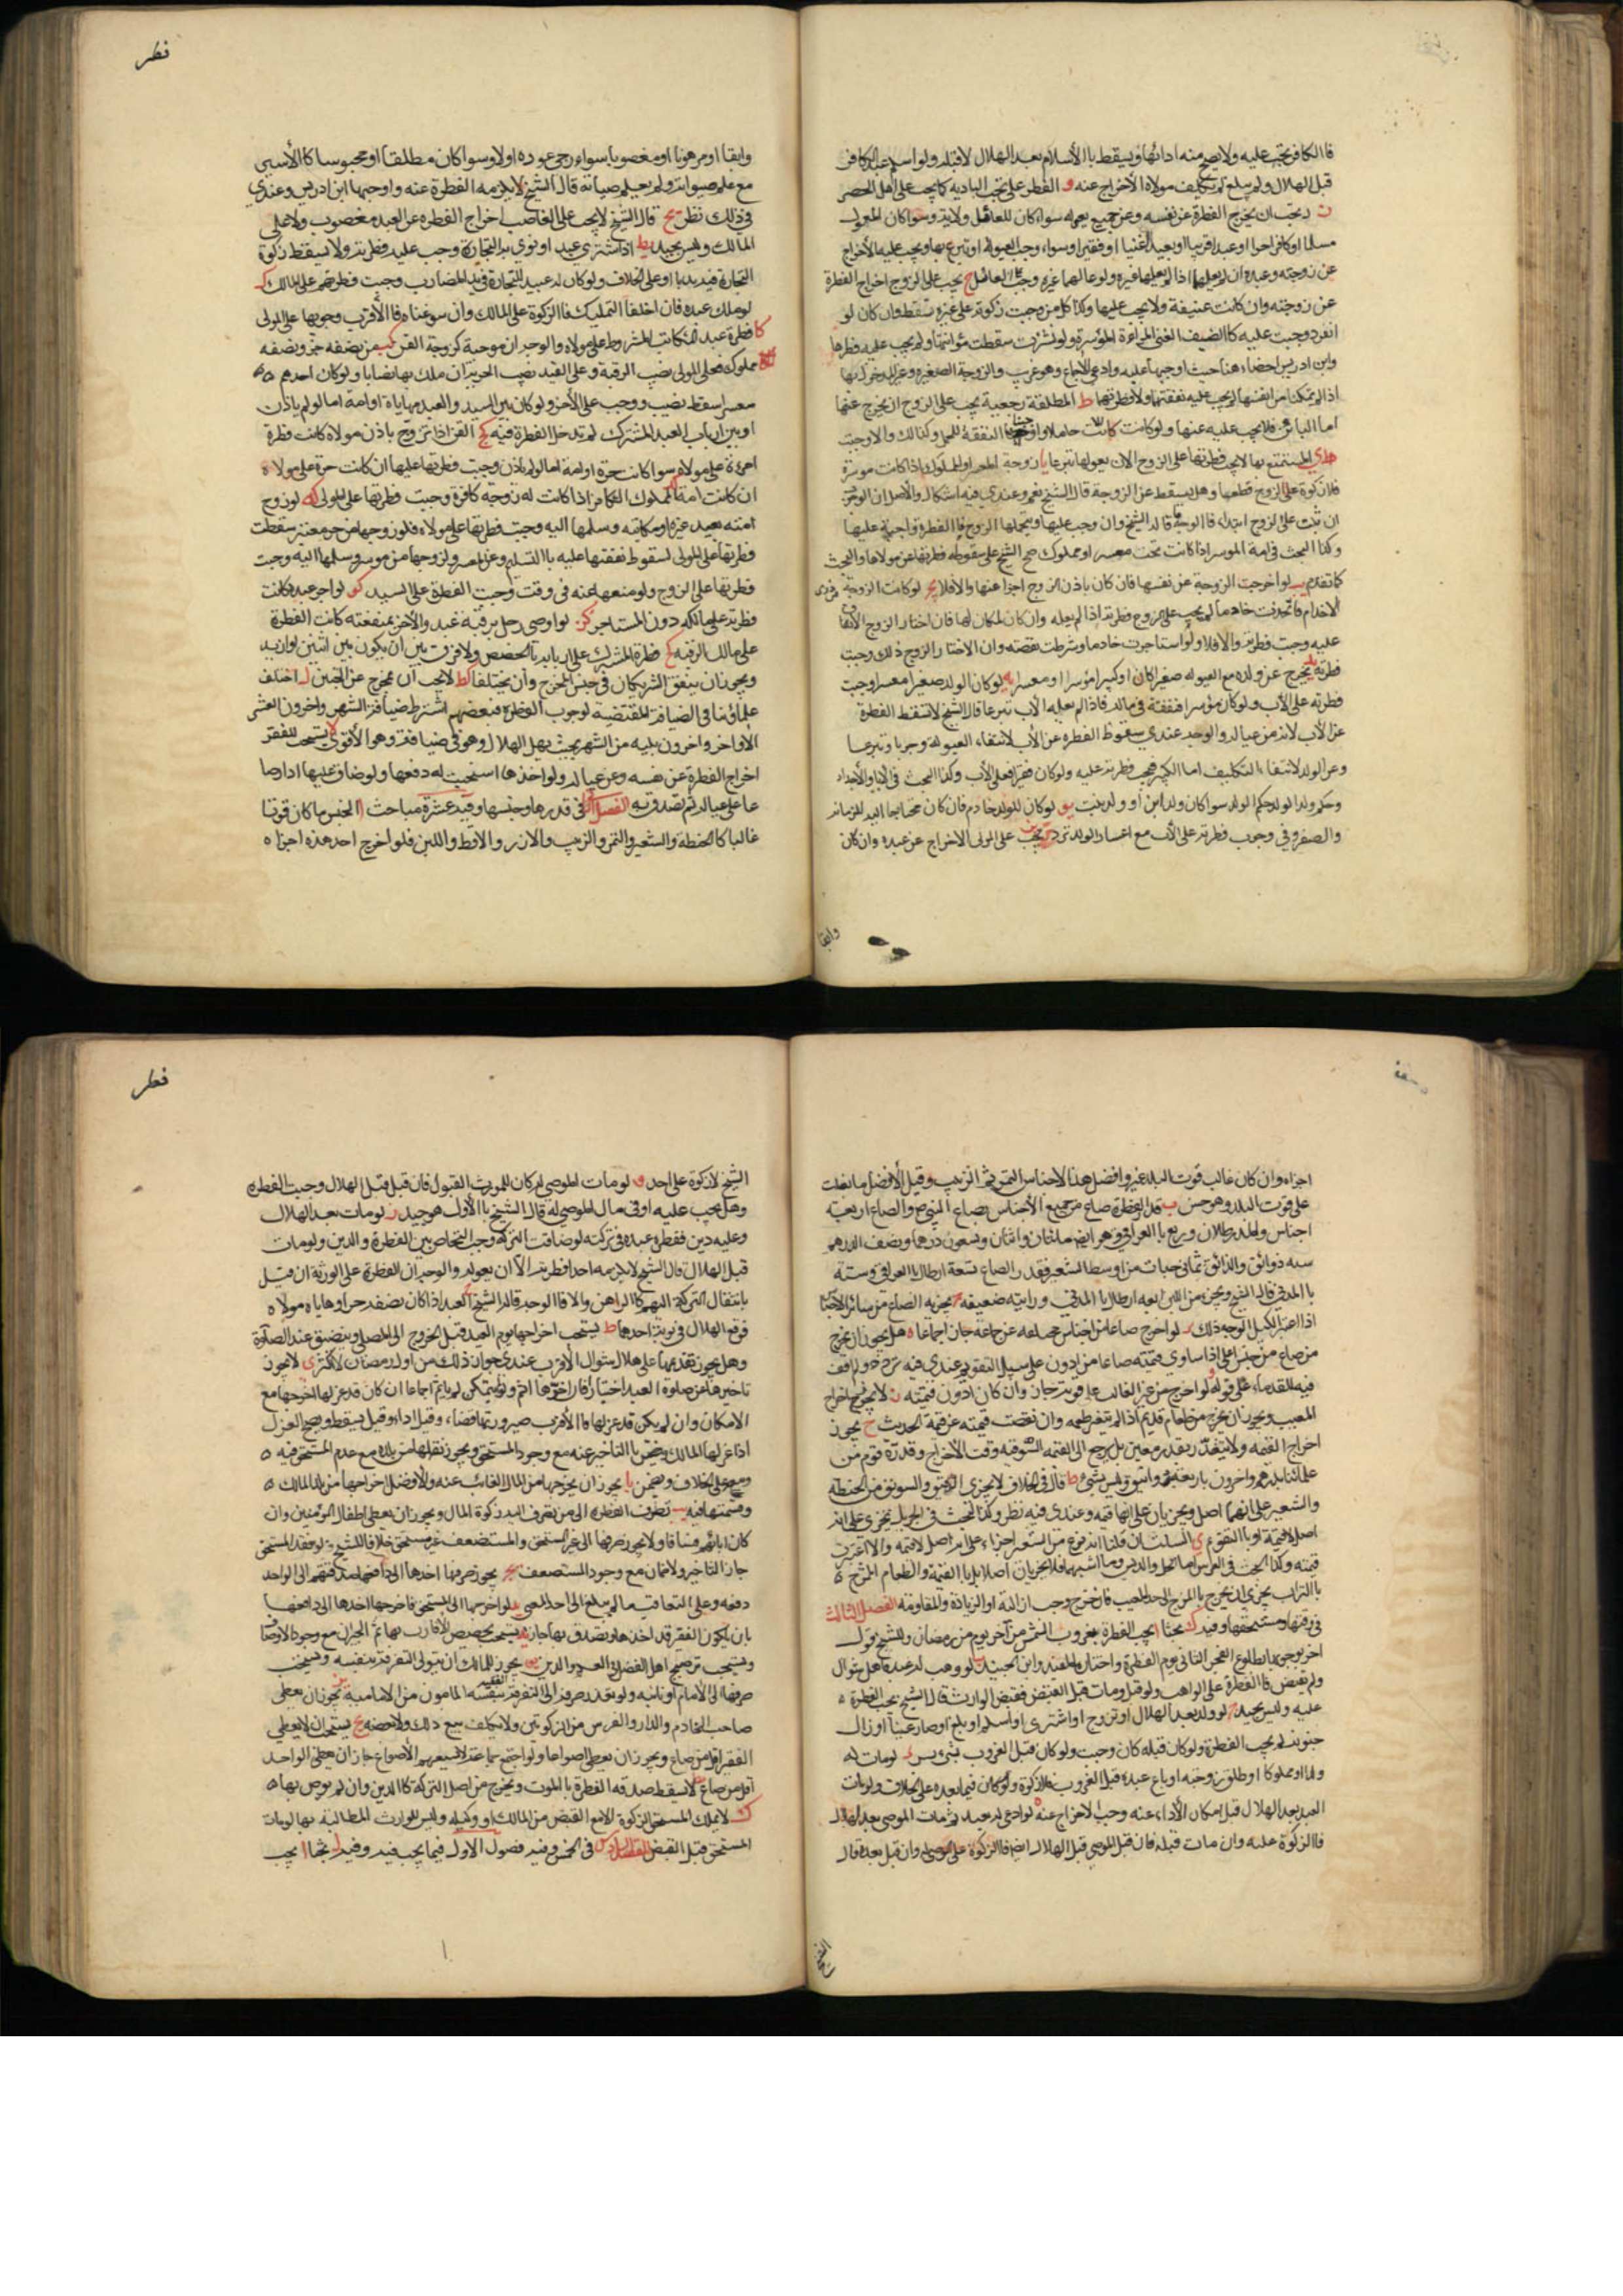 فالكافر تجب عليه ولا يصح منه ادائها ويسقط بالأسلام بعد الهلال لا قبله ولو اسلم عبد الكافر
قبل الهلال ولم يبلغ لم يكلف مولاه الأخراج عنه و الفطرة على تجب البادية كما يجب على أهل الحضر
ز يجب ان يخرج الفطرة عن نفسه وعن جميع يعوله سواء كان للعائل ولاية وسواكان المعول
مسلما او كافرا حرا او عبدا قريبا او بعيدا غنيا او فقيرا وسواء وجب العيولة او تبرع بها ويجب عليه الأخراج
عن زوجته وعبده ان لم يعلهما اذا لم يعلهما غيره ولو عالهما غيره وجب على العائل ح يجب على الزوج اخراج الفطرة
عن زوجته وان كانت غنية ولا يجب عليها وكذا كل من وجبت زكوته على غيره تسقط وان كان لو
انفرد وجبت عليه كالضيف الغني والمراءة الموسرة ولو نشزت سقطت مؤنتها ولم يجب عليه فطرتها
وابن ادريس اخطاء هنا حيث اوجبها عليه وادعى الاجماع وهو غريب والزوجة الصغيرة وغير المدخول بها
اذا لم يمكنا من انفسها لم يجب عليه نفقتهما ولا فطرتهما ط المطلقة رجعية يجب على الزوج ان يخرج عنها
اما البائن فلا يجب عليه عنها ولو كانت حاملا النفقة للحمل وكذلك والا وجبت
المستمتع بها لا يجب فطرتها على الزوج الا ان يعولها تبرعا يا زوجة المعسر او المملوك اذا كانت موسرة
فلا زكوة على الزوج قطعا وهل يسقط عن الزوجة قال الشيخ نعم وعندي فيه اشكال والأصل ان الوجوب
ان ثبت على الزوج ابتداء فالوجه ما قاله الشيخ وان وجب عليها ويتحملها الزوج فالفطرة واجبة عليها
وكذا البحث في امة الموسر اذا كانت تحت معسر او مملوك الشيخ على سقوط فطرتها عن مولاها والبحث
كما تقدم يب لو اخرجت الزوجة عن نفسها فان كان باذن الزوج اجزا عنها والا فلا يج لو كانت الزوجة من ذوى
الاخدام فاخدمت خادما لم يجب على الزوج فطرته اذا لم يعله وان كان ملكا لها فان اختار الزوج الانفاق
عليه وجبت فطرته والا فلا ولو استاجرت خادما وشرطت نفقته وان الاختار الزوج ذلك وجبت
فطرته يد يخرج عن ولده مع العيوله صغيرا كان او كبيرا موسرا او معسرا يه لو كان الولد صغيرا معسرا وجبت
فطرته على الأب ولو كان موسرا فنفقته في ماله فاذا لم يعله الأب تبرعا قال الشيخ لا تسقط الفطرة
عن الأب لانه من عياله والوجه عندي سقوط الفطرة عن الأب لانتفاء العيولة وجوبا وتبرعا
وعن الولد لانتفاء التكليف اما الكبير فيجب فطرته عليه ولو كان فقيرا فعلى الأب وكذا البحث في الاباء والأجداد
وحكم ولد الولد حكم الولد سواكان ولد ابن او ولد بنت يو لو كان للولد خادم فان كان محتاجا اليه للزمانة
والصغر وفي وجوب فطرته على الأب مع اعسار الولد تردد يز يجب على المولى الاخراج عن عبده وان كان
وابقا
فطر
وابقا او مرهونا او مغصوبا سواء رجى عوده اولا وسواكان مطلقا او محبوسا كالأسير
مع علم حيواته ولو لم يعلم حياته قال الشيخ لا يلزمه الفطرة عنه واوجبها ابن ادريس وعندي
في ذلك نظر يح قال الشيخ لا يجب على الغاصب اخراج الفطره عن العبد مغصوب ولا على
المالك وليس بجيد يط اذا اشترى عبد او نوى به التجارة وجب عليه فطرته ولا يسقط زكوة
التجارة على الخلاف ولو كان له عبيد للتجارة في يد المضارب وجبت فطرتهم على المالك ك
لو ملك عبده فان احلنا التمليك فالزكوة على المالك وان سوغناه فالأقرب وجوبها على المولى
كا فطرة عبد المكاتب المشروط على مولاه والوجه ان موجبة كزوجة القن كب من نصفه حر ونصفه
مملوك فعلى المولى نصيب الرقبة وعلى العبد نصيب الحرية ان ملك بها نصابا ولو كان احدهم
معسرا سقط نصيب ووجب على الأخر ولو كان بين السيد والعبد مهاياة او امة اما لو لم ياذن
او بين ارباب العبد المشترك لم تدخل الفطرة فيه كج القن اذا تزوج باذن مولاه كانت فطرة
امرءته على مولاه سواكانت حرة او امة اما لو لم ياذن وجبت فطرتها عليها ان كانت حرة على مولاه
ان كانت امة كد مملوك الكافر اذا كانت له زوجة كافرة وجبت فطرتها على المولى كه لو زوج
امته بعبد غيره او مكاتبه وسلمها اليه وجبت فطرتها على مولاه فلو زوجها من حر معسر سقطت
فطرتها على المولى لسقوط نفقتها عليه بالتسليم وعن المعسر ولو زوجها من موسر وسلمها اليه وجبت
فطرتها على الزوج ولو منعها عنه في وقت وجبت الفطرة على السيد كو لو اجر عبده كانت
فطرته على مالكه دون المستاجر كز لو اوصى رجل برقبة عبد والأخر بمنفعته كانت الفطرة
على مالك الرقبه كح فطرة المشترك على اربابه بالحصص ولا فرق بين ان يكون بين اثنين او ازيد
ويجوز ان يتفق الشريكان في جنس المخرج وان يختلفا كط لا يجب ان يخرج عن الجنين ل اختلف
علماؤنا في الضيافة المقتضية لوجوب الفطرة فبعضهم اشترط ضيافة الشهر واخرون العشر
الأواخر واخرون يليه من الشهر بحيث يهل الهلال وهو في ضيافته وهو الأقوى لا يستحب للفقير
اخراج الفطرة عن نفسه وعن عياله ولو اخذها استحب له دفعها ولو ضاق عليها ادار صا
عا على عياله ثم تصدق به الفصل في قدرها وجنسها وفيه عشرة مباحث ا الجنس ما كان قوتا
غالبا كالحنطة والشعير والتمر والزبيب والارز والاقط واللبن فلو اخرج احد هذه اجزاه
اجزاه وان كان غالب قوت البلد غيره وافضل هذا الاجناس التمر ثم الزبيب وقيل الأفضل ما يغلب
على قوت البلد وهو حسن ب قدر الفطرة صاع من جميع الأجناس بصاع النبي ص والصاع اربعة
اجناس والمد رطلان وربع بالعراقي وهو ايضا مائتان واثنان وتسعون درهما ونصف الدرهم
سته دوانق والدانق ثماني حبات من اوسط الشعير فقدر الصاع تسعة ارطال بالعراقي وستة
بالمدني قال الشيخ ويجزى من اللبن اربعه ارطال بالمدني وروايته ضعيفه ج يجزيه الصاع من سائر الأجناس
اذا اعتبر بالكيل الوجه ذلك د لو اخرج صاعا من اجناس جماعه عن جماعة جاز اجماعا ه هل يجوز ان يخرج
من صاع من جنس اعلى اذا ساوى قيمته صاعا من ادون على سبيل التقويم عندي فيه تردد ولم اقف
فيه للقدماء على قول و لو اخرج من غير الغالب على قوته جاز وان كان ادون قيمته ز لا يجوز اخراج
المعيب ويجوز ان يخرج من طعام قديم اذا لم يتغير طعمه وان نقصت قيمته عن قيمة الحديث ح يجوز
اخراج القيمه ولا يتقدر بقدر معين بل يرجع الى القيمه السوقيه وقت الأخراج وقدره قوم من
علمائنا بدرهم واخرون باربعة دوانيق وليس بشئ ط قال في الخلاف لا يجزى الدقيق والسويق من الحنطة
والشعير على انهما اصل ويجزيان على انها قيمه وعندي فيه نظر وكذا البحث في الخبز يجزى على انه
اصل لا قيمة او بالتقويم ي السلت ان قلنا انه نوع من الشعير اجزاء على انه اصل لا قيمه والا اعتبرت
قيمته وكذا البحث في العلس اما الخل والدبس وما اشبههما فلا يجزيان اصلا بل بالقيمة والطعام الممتزج
بالتراب يجزى ان يخرج بالمزج الى حد المعيب فان خرج وجب ازالته او الزيادة والمقاومة الفصل الثالث
في وقتها ومستحقها وفيه ك بحثا ا تجب الفطرة بغروب الشمس من آخر يوم من رمضان وللشيخ قول
اخر بوجوبها بطلوع الفجر الثاني يوم الفطرة واختاره المفيد وابن الجنيد ب لو وهب له عبد فاهل شوال
ولم يقبض فالفطرة على الواهب ولو قبل ومات قبل القبض فقبض الوارث قال الشيخ يجب الفطرة
عليه وليس بجيد ج لو ولد بعد الهلال او تزوج او اشترى او اسلم او بلغ او صار غنيا او زال
جنونه لم يجب الفطرة ولو كان قبله كان وجبت ولو كان قبل الغروب بشئ يسير د لو مات له
ولد او مملوكا او طلق زوجته او باع عبده قبل الغروب فلا زكوة ولو كان فيما بعده على الخلاف ولو مات
العبد بعد الهلال قبل امكان الأداء عنه وجب الاخراج عنه ه لو اوصى له بعبد ثم مات الموصى بعد الهلال
فالزكوة عليه وان مات قبله فان قبل الموصى قبل الهلال ايضا فالزكوة على الموصى له وان قبل بعده قال
الشيخ
فطر
الشيخ لا زكوة على احد و لو مات الموصى له كان للورث القبول فان قبل قبل الهلال وجبت الفطره
وهل يجب عليه او في مال الموصى له قال الشيخ بالأول هو جيد ز لو مات بعد الهلال
وعليه دين ففطرة عبده في تركته لو ضاقت التركة وجب التحاص بين الفطرة والدين ولو مات
قبل الهلال قال الشيخ لا يلزمه احد فطرته الا ان يعوله والوجه ان الفطرة على الورثة ان قيل
بانتقال التركة اليهم كالراهن والا فالوجه قاله الشيخ ح العبد اذا كان نصفه حر او هاياه مولاه
فوقع الهلال في نوبة احدها ط يستحب اخراجها يوم العيد قبل الخروج الى المصلى ويتضيق عند الصلوة
وهل يجوز تقديمها على هلال شوال الأقرب عندي جواز ذلك من اول رمضان لا اكثر ي لا يجوز
تاخيرها عن صلوة العيد اختيارا فان اخرها اثم ولو لم يتمكن لم ياثم اجماعا ان كان قد عزلها اخرجها مع
الامكان وان لم يكن قد عزلها فالأقرب صيرورتها قضاء وقيل اداء وقيل يسقط ويصح العزل
اذا عزلها المالك ويضمن بالتاخير عنه مع وجود المستحق ويجوز نقلها من بلده مع عدم المستحق فيه
ومعه على الخلاف ويضمن يا يجوز ان يخرجها من المال الغائب عنه والأفضل اخراجها من بلد المالك
وقسمتها فيه يب تصرف الفطره الى من يصرف اليه زكوة المال ويجوز ان يعطى اطفال المؤمنين وان
كان اباؤهم فساقا ولا يجوز صرفها الى غير المستحق والمستضعف غير مستحق خلافا للشيخ ولو فقد المستحق
جاز التاخير ولا ضمان مع وجود المستضعف يج يجوز صرفها احدها الى من صدقتهم الى الواحد
دفعه وعلى التعاقب ما لم يبلغ الى احد الغنى يد لو اخرجها الى المستحق فاخرجها اخذها الى دافعها
بان يكون الفقير قد اخذها وتصدق بها جاز يه يستحب تخصيص الأقارب بها ثم الجيران مع وجود الأوصاف
ويستحب ترجيح اهل الفضل في العلم والدين يو يجوز للمالك ان يتولى التفرقة بنفسه ويستحب
صرفها الى الأمام او نائبه ولو تعذر صرف الى الفقيه المامون من الامامية يز يجوز ان يعطى
صاحب الخادم والدار والفرس من الزكوتين ولا يكلف بيع ذلك ولا بعضه يح يستحب ان لا يعطى
الفقير اقل من صاع ويجوز ان يعطى اصواعا ولو اجتمع جماعة لا يسعهم الأصواع جاز ان يعطى الواحد
اقل من صاع يط لا يسقط صدقه الفطرة بالموت ويخرج من اصل التركة كالدين وان لم يوص بها
ك لا يملك المستحق الزكوة الا مع القبض من المالك او وكيله وليس للوارث المطالبة بها لو مات
المستحق قبل القبض المقصد السادس في الخمس وفيه فصول الاول فيما يجب فيه وفيه بحثا ا يجب